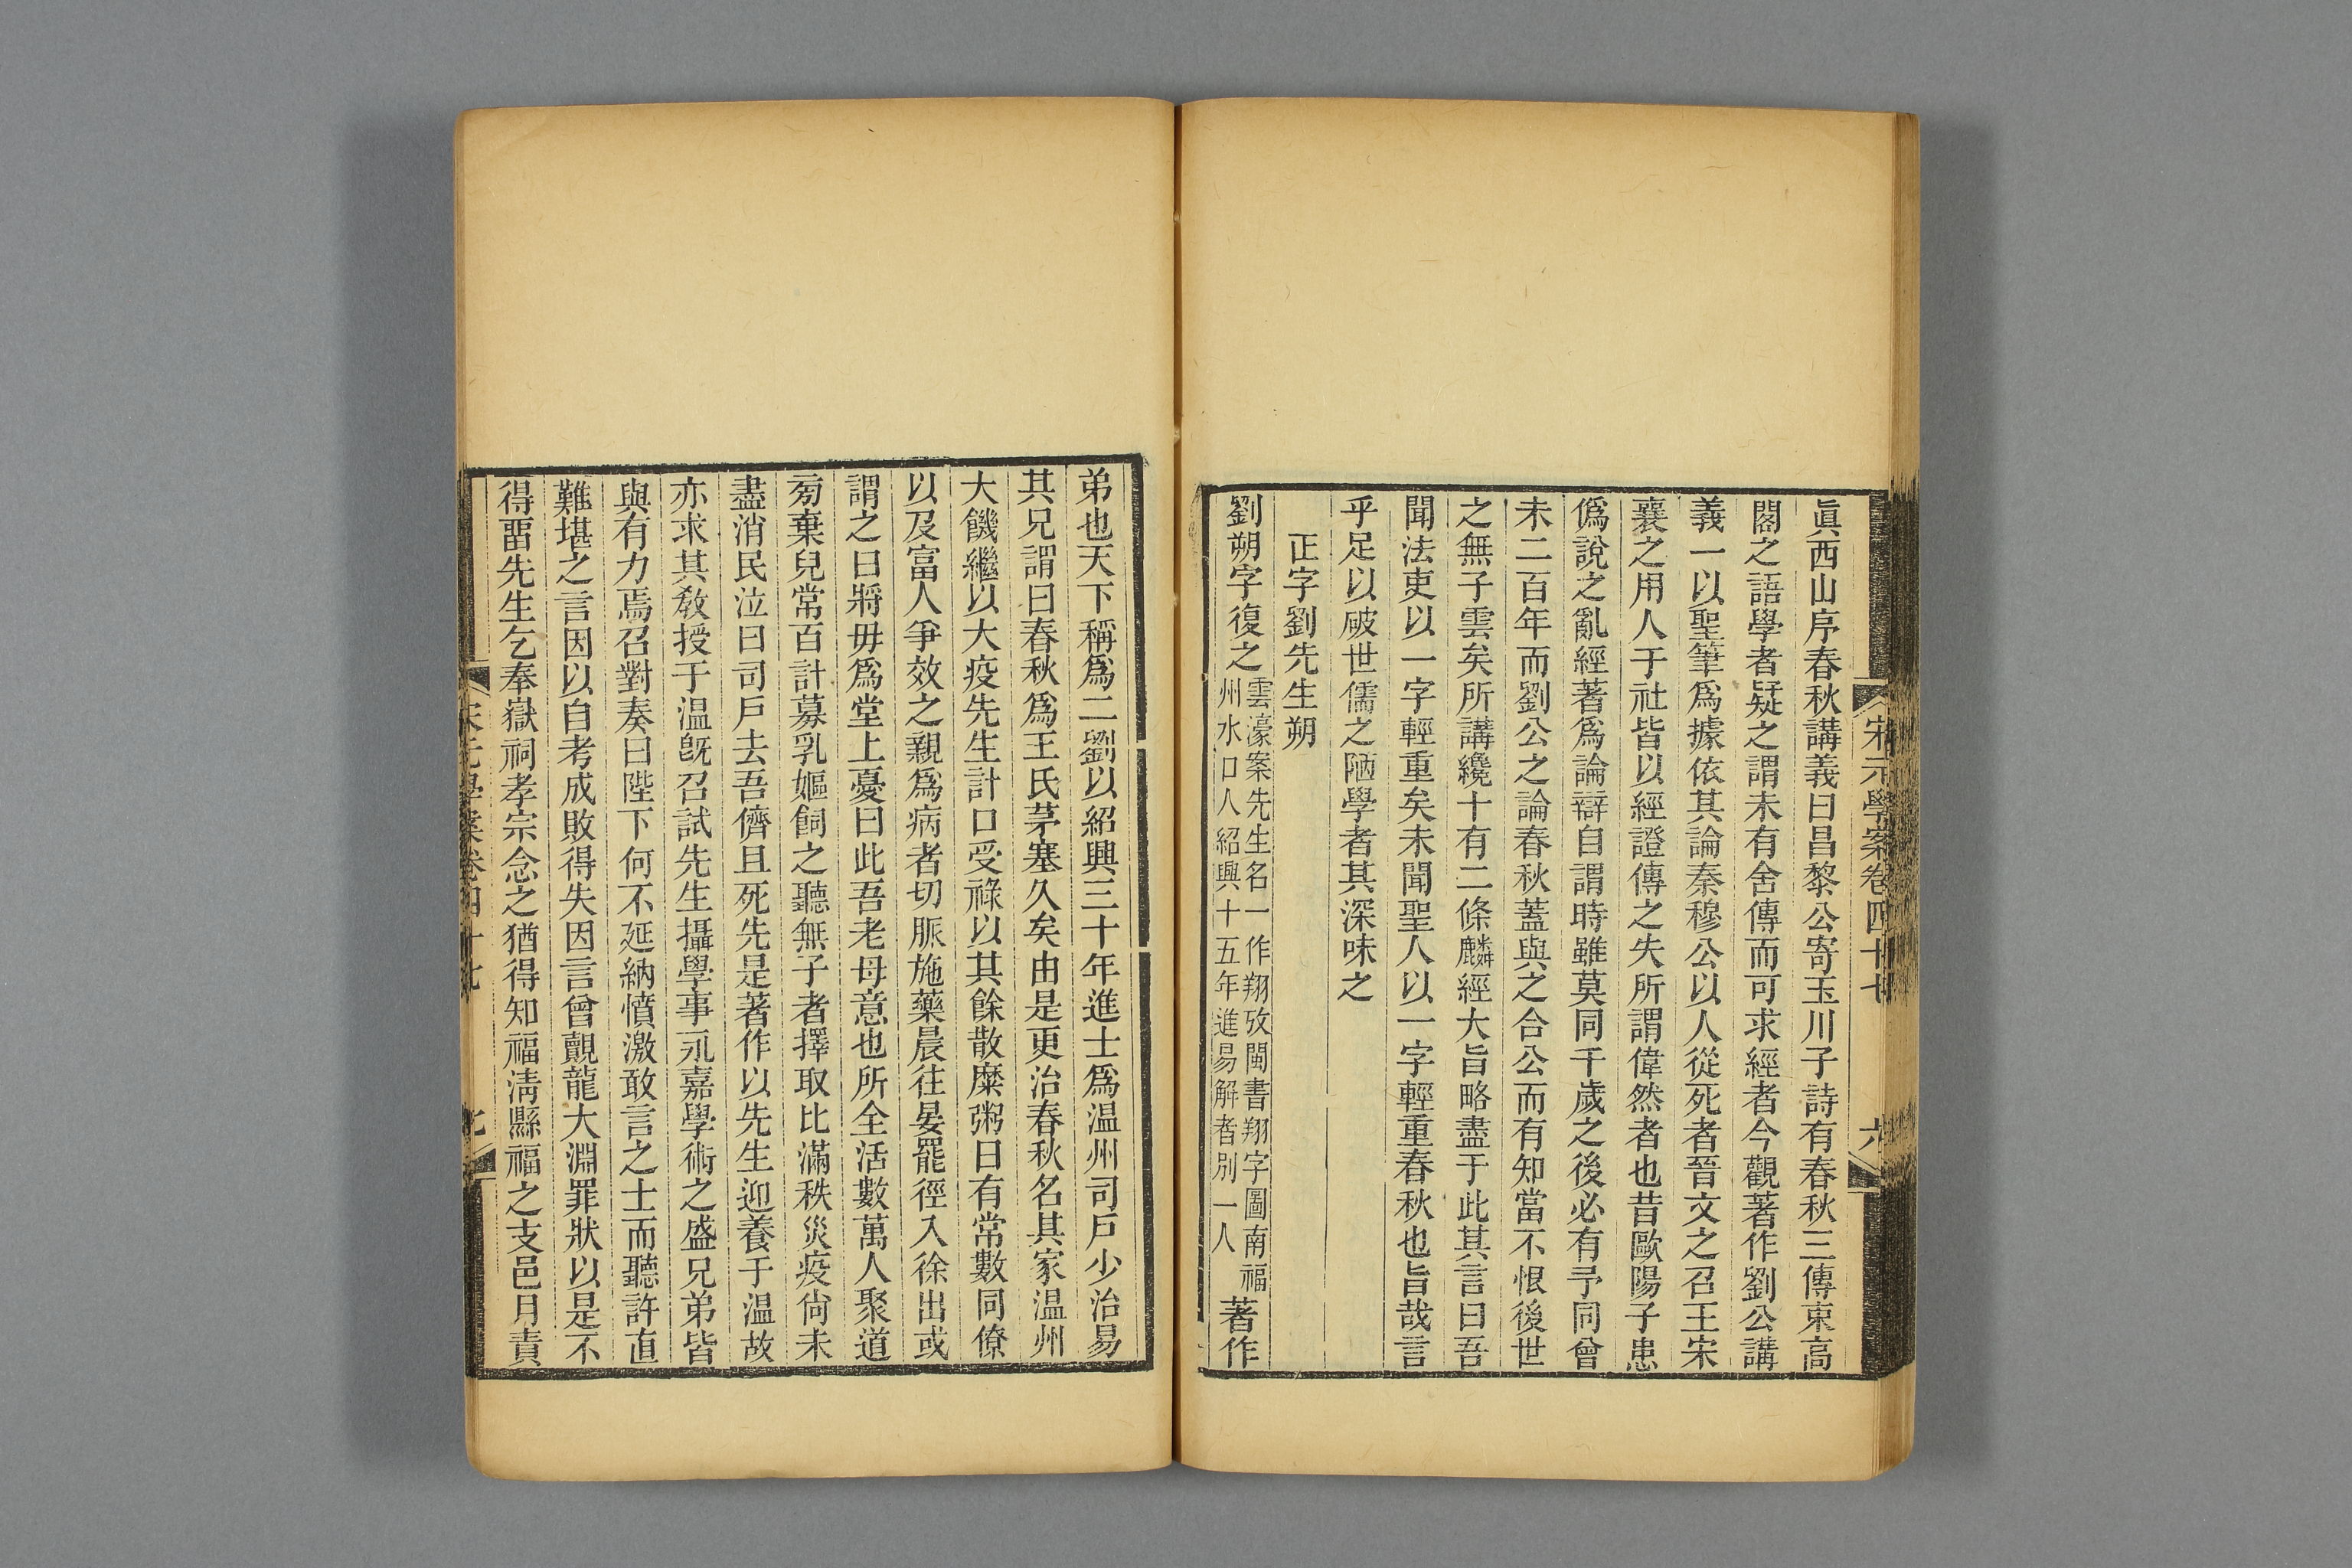 宋元學案卷四十七 六
眞西山序春秋講義曰昌黎公寄玉川子詩有春秋三傳束高
閣之語學者疑之謂未有舍傳而可求經者今觀著作劉公講
義一以聖筆爲據依其論秦穆公以人從死者晉文之召王宋
襄之用人于社皆以經證傳之失所謂偉然者也昔歐陽子患
僞說之亂經著爲論辯自謂時雖莫同千歲之後必有予同曾
未二百年而劉公之論春秋蓋與之合公而有知當不恨後世
之無子雲矣所講纔十有二條麟經大旨略盡于此其言曰吾
聞法吏以一字輕重矣未聞聖人以一字輕重春秋也旨哉言
乎足以破世儒之陋學者其深味之
正字劉先生朔
劉朔字復之雲濠案先生名一作翔攷閩書翔字圖南福州水口人紹興十五年進易解者別一人著作
弟也天下稱爲二劉以紹興三十年進士爲温州司戶少治易
其兄謂曰春秋爲王氏茅塞久矣由是更治春秋名其家温州
大饑繼以大疫先生計口受祿以其餘散糜粥日有常數同僚
以及富人爭效之親爲病者切脈施藥晨往晏罷徑入徐出或
謂之曰將毋爲堂上憂曰此吾老母意也所全活數萬人聚道
㫄棄兒常百計募乳嫗飼之聽無子者擇取比滿秩災疫尙未
盡消民泣曰司戶去吾儕且死先是著作以先生迎養于温故
亦求其敎授于温旣召試先生攝學事永嘉學術之盛兄弟皆
與有力焉召對奏曰陛下何不延納憤激敢言之士而聽許直
難堪之言因以自考成敗得失因言曾覿龍大淵罪狀以是不
得畱先生乞奉嶽祠孝宗念之猶得知福淸縣福之支邑月責
宋元學案卷四十七 七